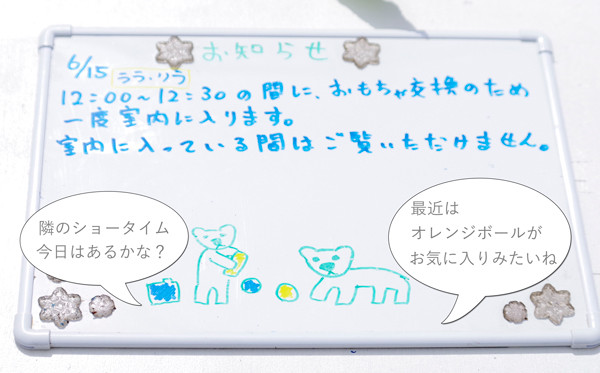 お知らせ
6/15 ララ・リラ
12:00〜12:30の間に、おもちゃ交換のため
一度室内に入ります。
室内に入っている間はご覧いただけません。
隣のショータイム
今日はあるかな？
最近は
オレンジボールが
お気に入りみたいね